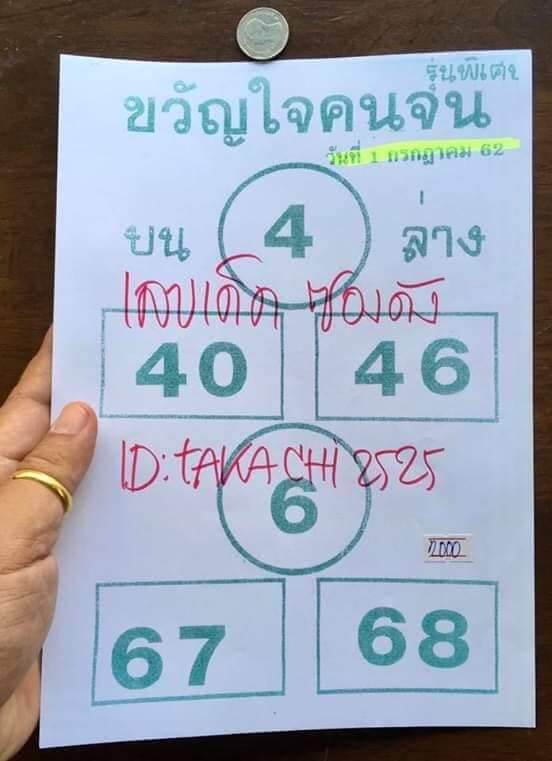 รุ่นพิเศษ
ขวัญใจคนจน
วันที่ 1 กรกฎาคม 62
บน 4 ล่าง
เลขเด็ด ซองดัง
40 46
ID: tAKACHi 2525
6
2000
67 68